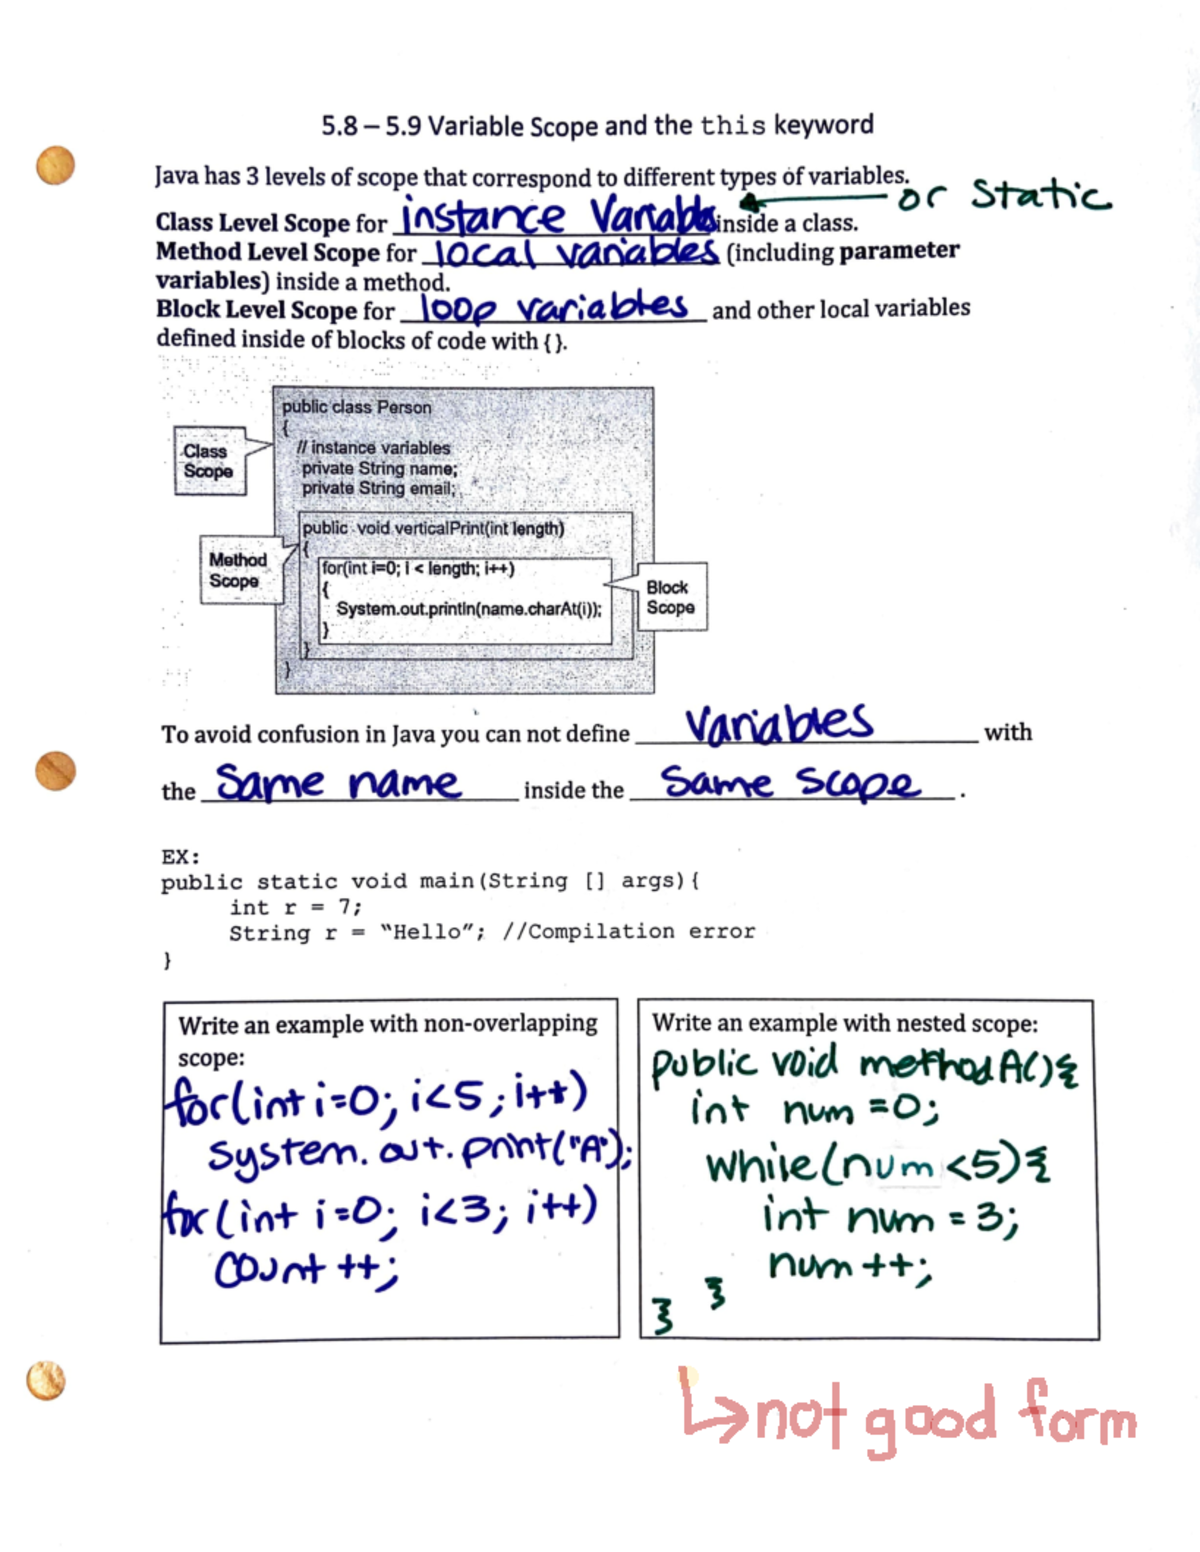 5.8 – 5.9 Variable Scope and the this keyword
Java has 3 levels of scope that correspond to different types of variables.
or Static
Class Level Scope for instance Variables inside a class.
Method Level Scope for local variables (including parameter
variables) inside a method.
Block Level Scope for loop variables and other local variables
defined inside of blocks of code with { }.
public class Person
{
Class
Scope
// instance variables
private String name;
private String email;
public void verticalPrint(int length)
{
Method
Scope
for(int i=0; i < length; i++)
{
System.out.println(name.charAt(i));
}
Block
Scope
}
}
To avoid confusion in Java you can not define Variables with
the Same name inside the Same scope.
EX:
public static void main(String [] args){
int r = 7;
String r = “Hello”; //Compilation error
}
Write an example with non-overlapping
scope:
for(int i=0; i<5; i++)
System.out.print("A");
for(int i=0; i<3; i++)
Count ++;
Write an example with nested scope:
public void methodA(){
int num =0;
while(num <5){
int num = 3;
num ++;
}
}
not good form